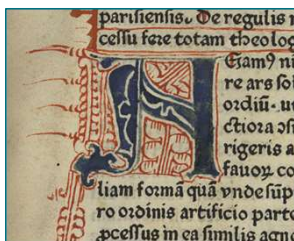 parisiensis. De regulis n
cessu fere totam theolog
re ars so
ordiū. u
ctiora
rigeris a
fauoꝝ co
liam formā quā vnde sup
ro ordinis artificio parte
pcessus in ea similis agno